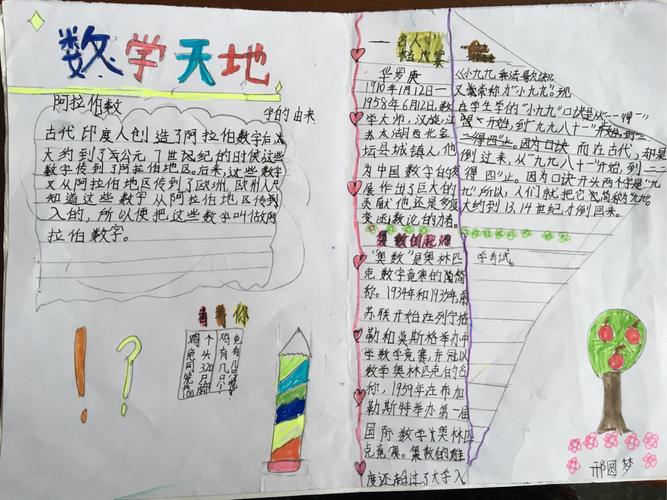 数学天地
阿拉伯数
字的由来
古代印度人创造了阿拉伯数字后,
大约到了公元7世纪的时侯这些
数字传到了阿拉伯地区。后来,这些数字
又从阿拉伯地区传到了欧洲,欧州人只
知道这些数字从阿拉伯地区传
入的,所以便把这些数字叫做阿
拉伯数字。
考考你
名人
档案
华罗庚
1910年1月12日一
1958年6月12日,数
学大师,汉族,江
苏太湖西北金
坛县城镇人,他
为中国数字的发
展作出了巨大的
贡献他还是多复
变函数论的
奥数的起源
"奥数"是奥林匹
克数字竞赛的简
称。1934年和1935年,前
苏联开始在列宁格
勒和莫斯格举办中
学数学竞赛,并冠以
数学奥林匹克的名
称,1959年在布加
勒斯特举办第一届
国际数学奥林匹
克竞赛。奥数的难
度还超过了大学入
学考试。
《小九九乘法口诀》
又常称为"小九九"。现
在学生学的"小九九"口诀是从"一一得一"
开始,到"九九八十一"
而在古代,却是
倒过来,从"九九八十一"开始,到"二二
得四"止。因为口诀开头两个字是"九
九",所以,人们就把它简称为"九九"。
大约到13、14世纪才倒回来。
邢圆梦